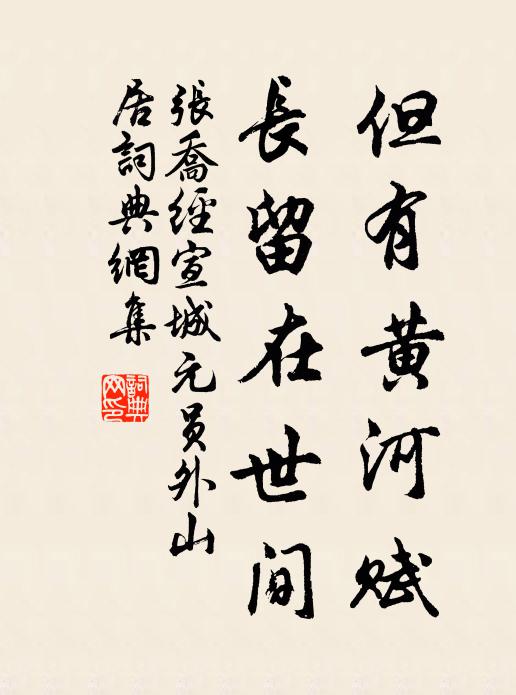 但有黄河赋
長留在世間
張喬經宣城元員外山
居詞典網集
詞典网印